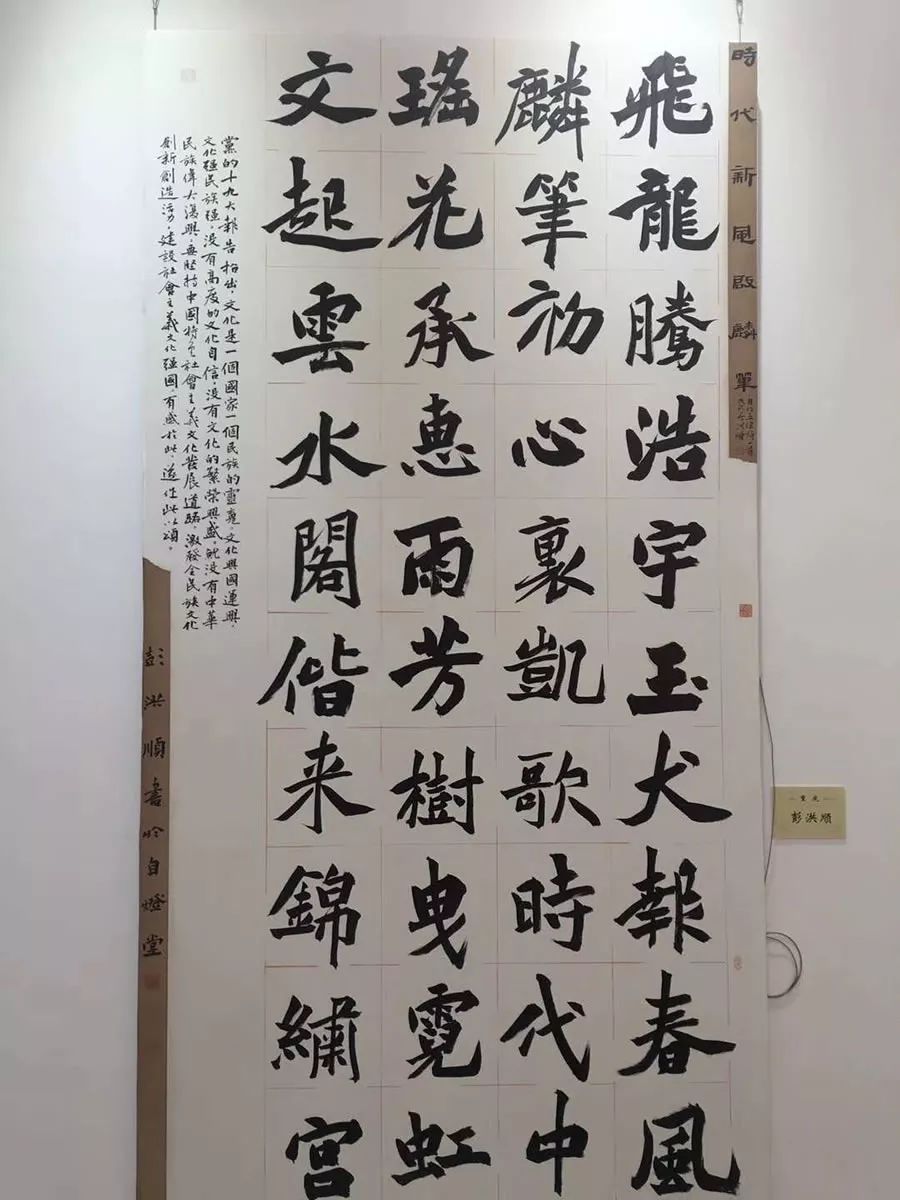 時代新風啟麟筆
飛龍騰浩宇玉犬報春風
麟筆初心裏凱歌時代中
瑤花承惠雨芳樹曳霓虹
文起雲水閣偕来錦繡宮
黨的十九大報告指出，文化是一個國家一個民族的靈魂。文化興國運興，
文化强民族强。没有高度的文化自信，没有文化的繁榮興盛，就没有中華
民族偉大復興。要堅持中國特色社會主義文化發展道路，激發全民族文化
創新創造活力，建設社會主義文化强國。有感於此，遂作此以頌。
彭洪順書於自燈堂
彭洪順